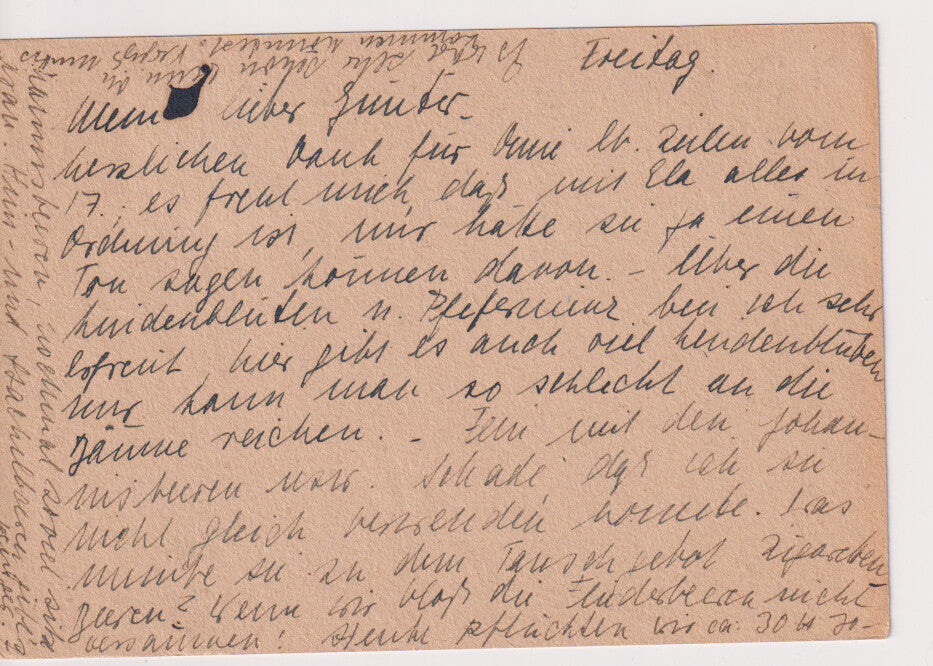 Freitag.
Mein lieber Günter.
herzlichen Dank für Deine lb. Zeilen vom
17., es freut mich, daß mit Ela alles in
Ordnung ist, nur hätte sie ja einen
Ton sagen können davon. – Über die
Lindenblüten u. Pfeferminz bin ich sehr
erfreut, hier gibt es auch viel Lindenblüten
nur kann man so schlecht an die
Bäume reichen. – Fein mit den Johan-
nisbeeren war. Schade, daß ich sie
nicht gleich verwenden konnte. Was
sie zu dem Tauschgebot Zigaretten
Beeren? Wenn wir bloß die Fliederbeeren nicht
versäumen! Heute pflückten wir ca. 30 b
Es wird sehr schön wenn Du
kommen könntest.
Johannisbeeren, nochmal soviel
und Stachelbeeren